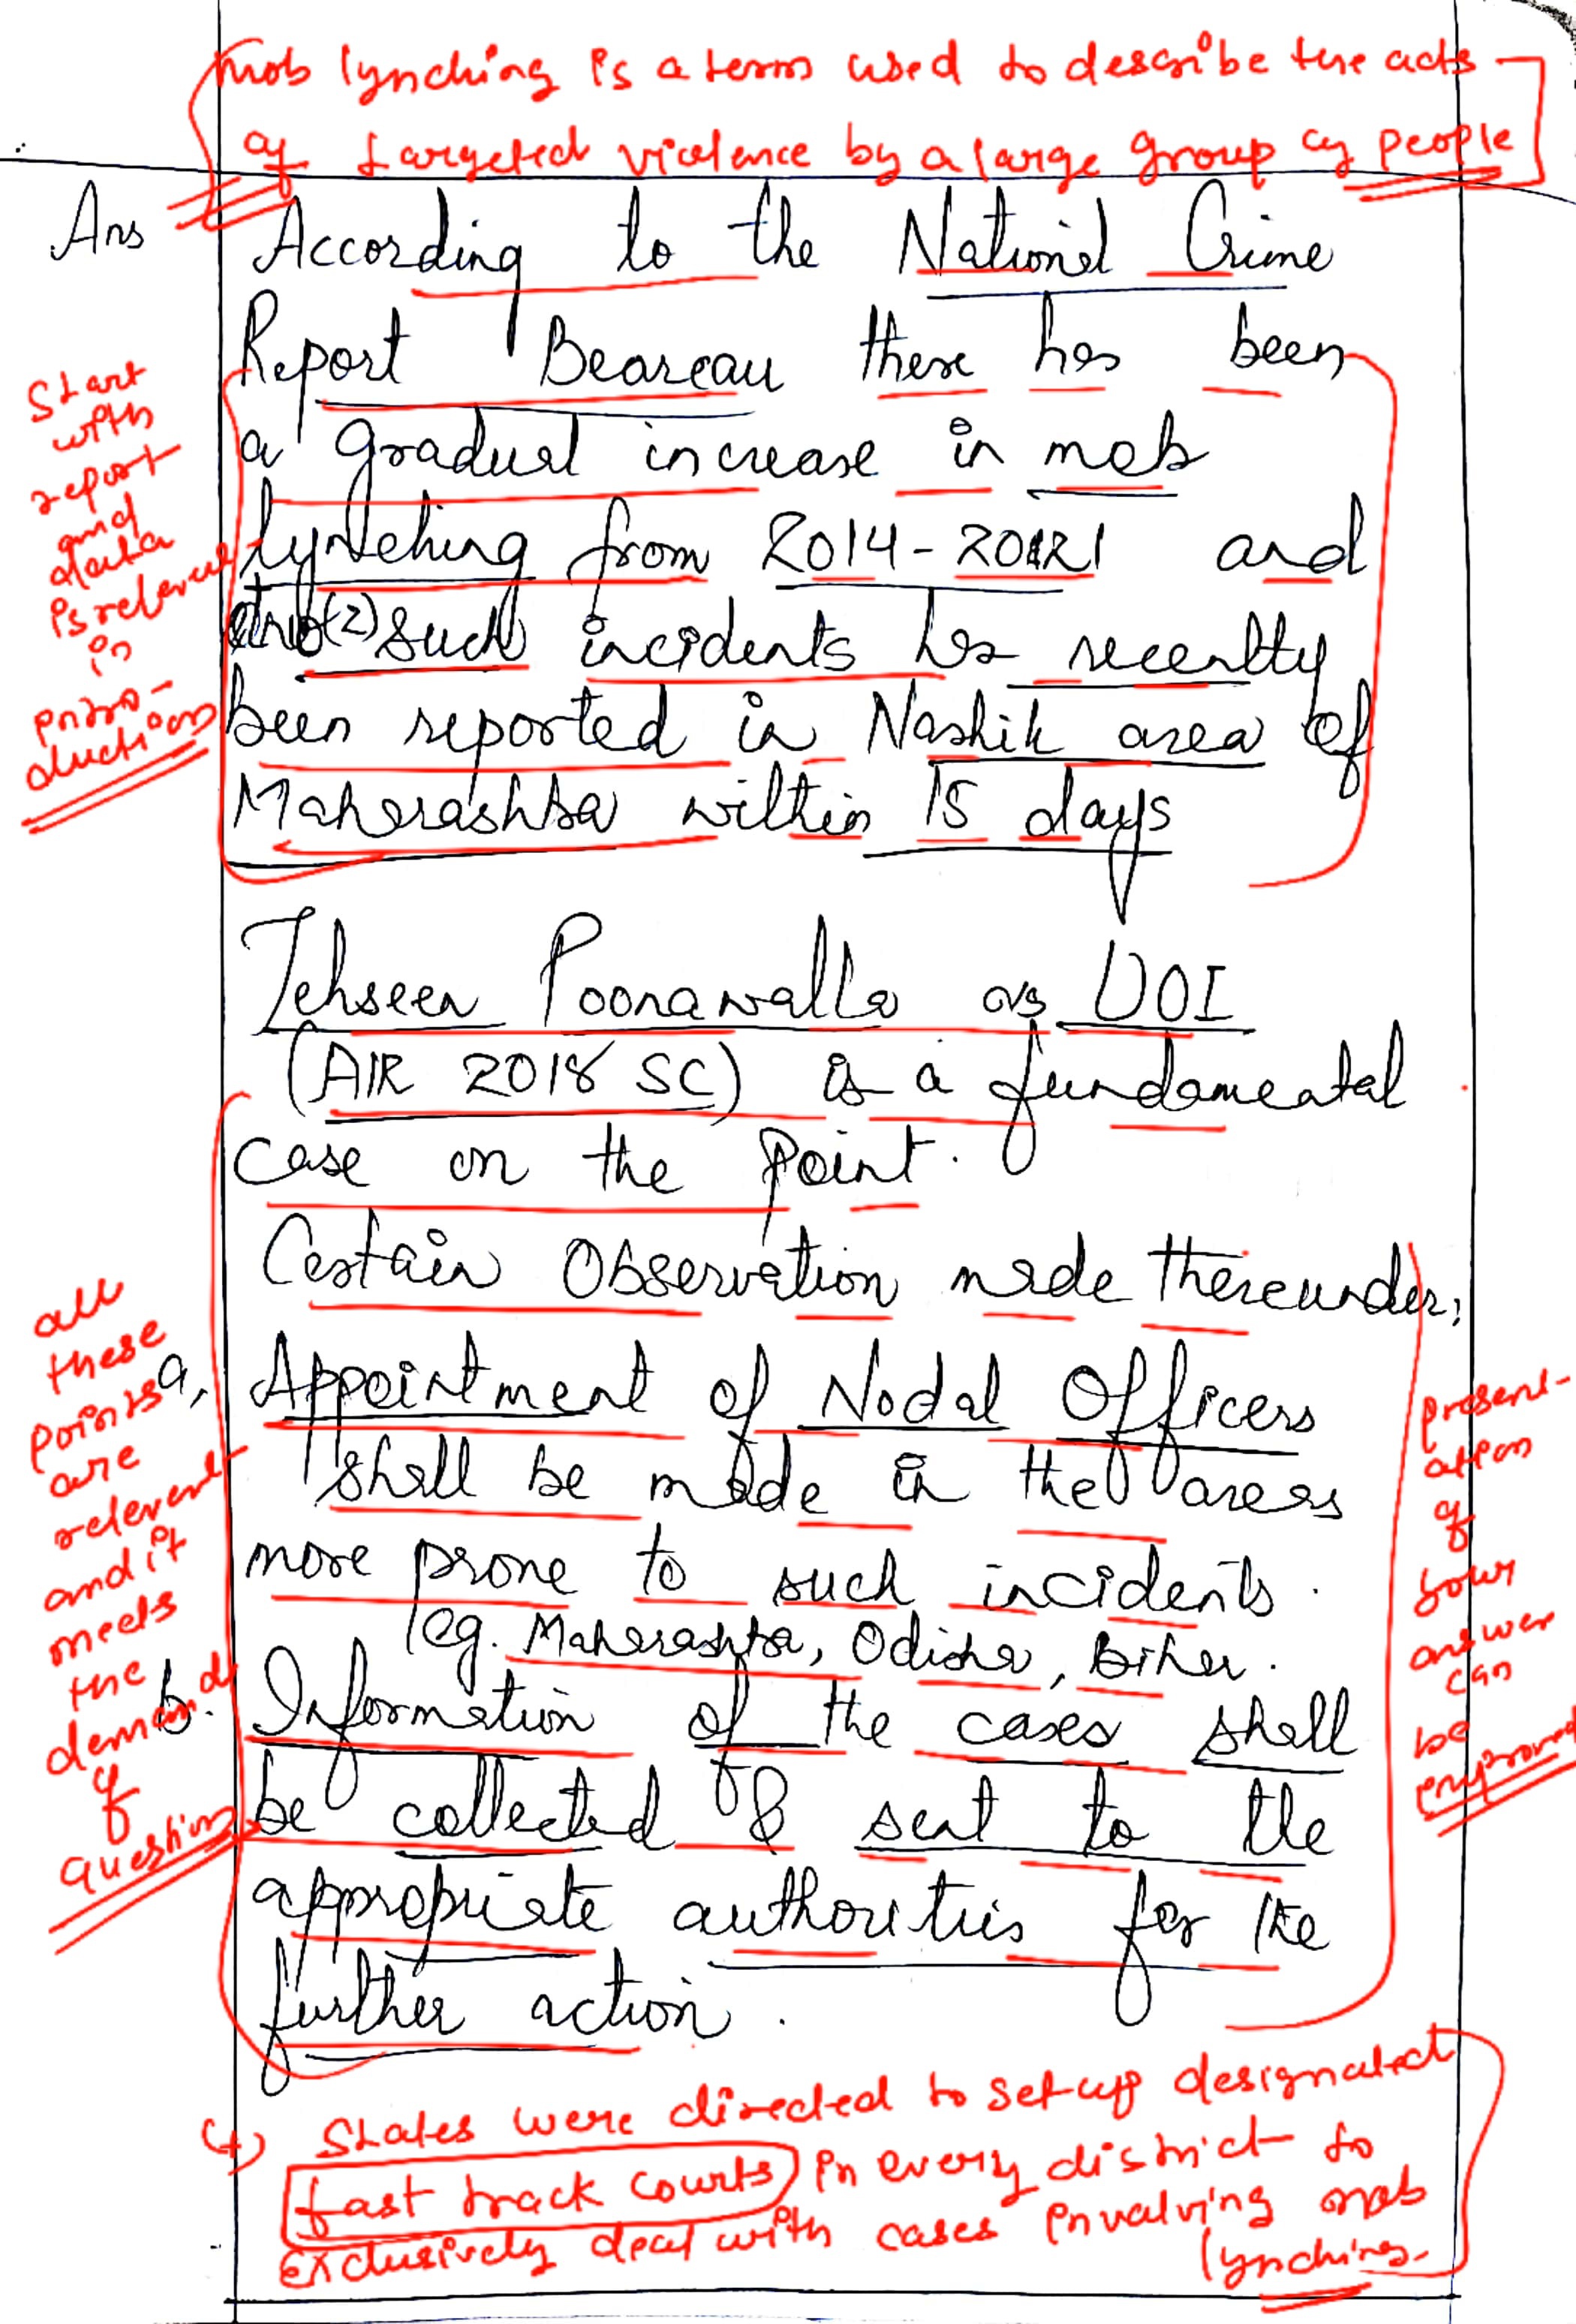 mob lynching is a term used to describe the acts
of targeted violence by a large group of people
Ans According to the National Crime
Report Beareau there has been
a gradual increase in mob
lynching from 2014-2021 and
(2) such incidents has recently
been reported in Nashik area of
Maharashtra within 15 days
Start
with
report
and
data
is relevant
in
intro-
duction
Tehseen Poonawalla vs UOI
(AIR 2018 SC) is a fundamental
case on the point.
Certain Observation made thereunder;
a, Appointment of Nodal Officers
shall be made in the areas
more prone to such incidents.
eg. Maharashtra, Odisha, Bihar.
b. Information of the cases shall
be collected & sent to the
appropriate authorities for the
further action.
all
these
points
are
relevant
and it
meets
the
demand
of
question
present-
ation
of
your
answer
can
be
improved
(4) States were directed to set up designated
fast track courts in every district to
exclusively deal with cases involving mob
lynching.